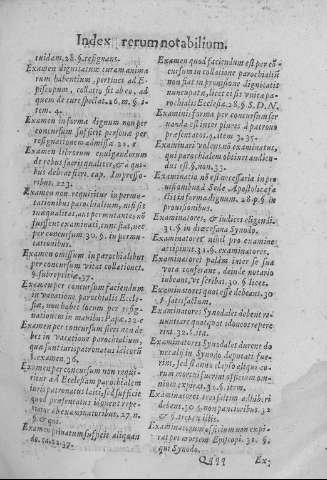 Index rerum notabilium.
tuidam. 28. §. resignans.
Examen dignitatis curam anima
rum habentium, pertinet ad E-
piscopum, collatis sit ab eo, ad
quem de iure spectat. 26. in §. i-
tem. 4.
Examen in forma dignum non per
concursum sufficit persona per
resignationem admissa. 20. e
Examen librorum
de rebus sacri
bus debeat fieri. cap. Impresso-
ribus. 223.
Examen non requiritur in permu-
tationibus parochialium, nisi sit
inæqualitas, aut permutantes nõ
fuissent examinati, tunc fiat, nec
per concursum 30. §. in permu-
tationibus.
Examen omissum in parochialibus
per concursum vitiat collationet.
§. subrepticia. 27.
Examen per concursum faciendum
in vacatione parochialis Eccle-
siæ, non habet locum per resig-
nationem in manibus Papæ. 22. e
Examen per concursum fieri non de
bet in vacatione parochialium,
quæ sunt iurispatronatus laicorũ
§. examen. 36.
Examen per concursum non requi-
ritur ad Ecclesiam parochialem
iurispatronatus laici, sed sufficit
quod præsentatus idoneus repe-
riatur ab examinatoribus. 27. n.
9. &
Examen privatum sufficit aliquan
do. 22. 37.
Examen quod faciendum est per cõ-
cursum in collatione parochialiũ
non fiat in provisione dignitatis
nuncupatæ, licet ei sit unita pa-
rochialis Ecclesia. 28. §. S. D. N.
Examinis forma per concursum ser
vanda est inter plures à patrono
præsentatos. §. item 3. 35.
Examinari volens nõ examinatus,
qui parochialem obtinet audien-
dus est. §. non. 33.
Examinatio nõ est necessaria in pro
visionibus à Sede Apostolica fa-
ctis in forma dignum. 28. §. in
provisionibus.
Examinatores, & iudices eligendi.
31. §. in diœcesana Synodo.
Examinatores nihil pro examine
accipiant. 31. §. examinatores.
Examinatores palam inter se sua
vota conferant, deinde notario
iubeant, ut scribat. 30. §. licet.
Examinatores quot esse debeant. 30
§. satisfactum.
Examinatores Synodales debent re-
nuntiare quotquot idoneos repere
rint. 32. §. ita.
Examinatores Synodales durent do
nec alij in Synodo deputati fue-
rint, sed si anno elapso aliqui eo-
rum mortui fuerint officium om-
nium expirat. 31. §. item.
Examinatores tres saltem adhiberi
debent. 30. §. non pauciores. 32
&
Examinatorum officium non expi-
rat per mortem Episcopi. 31. §.
qui Synodo.
Qqq Ex-